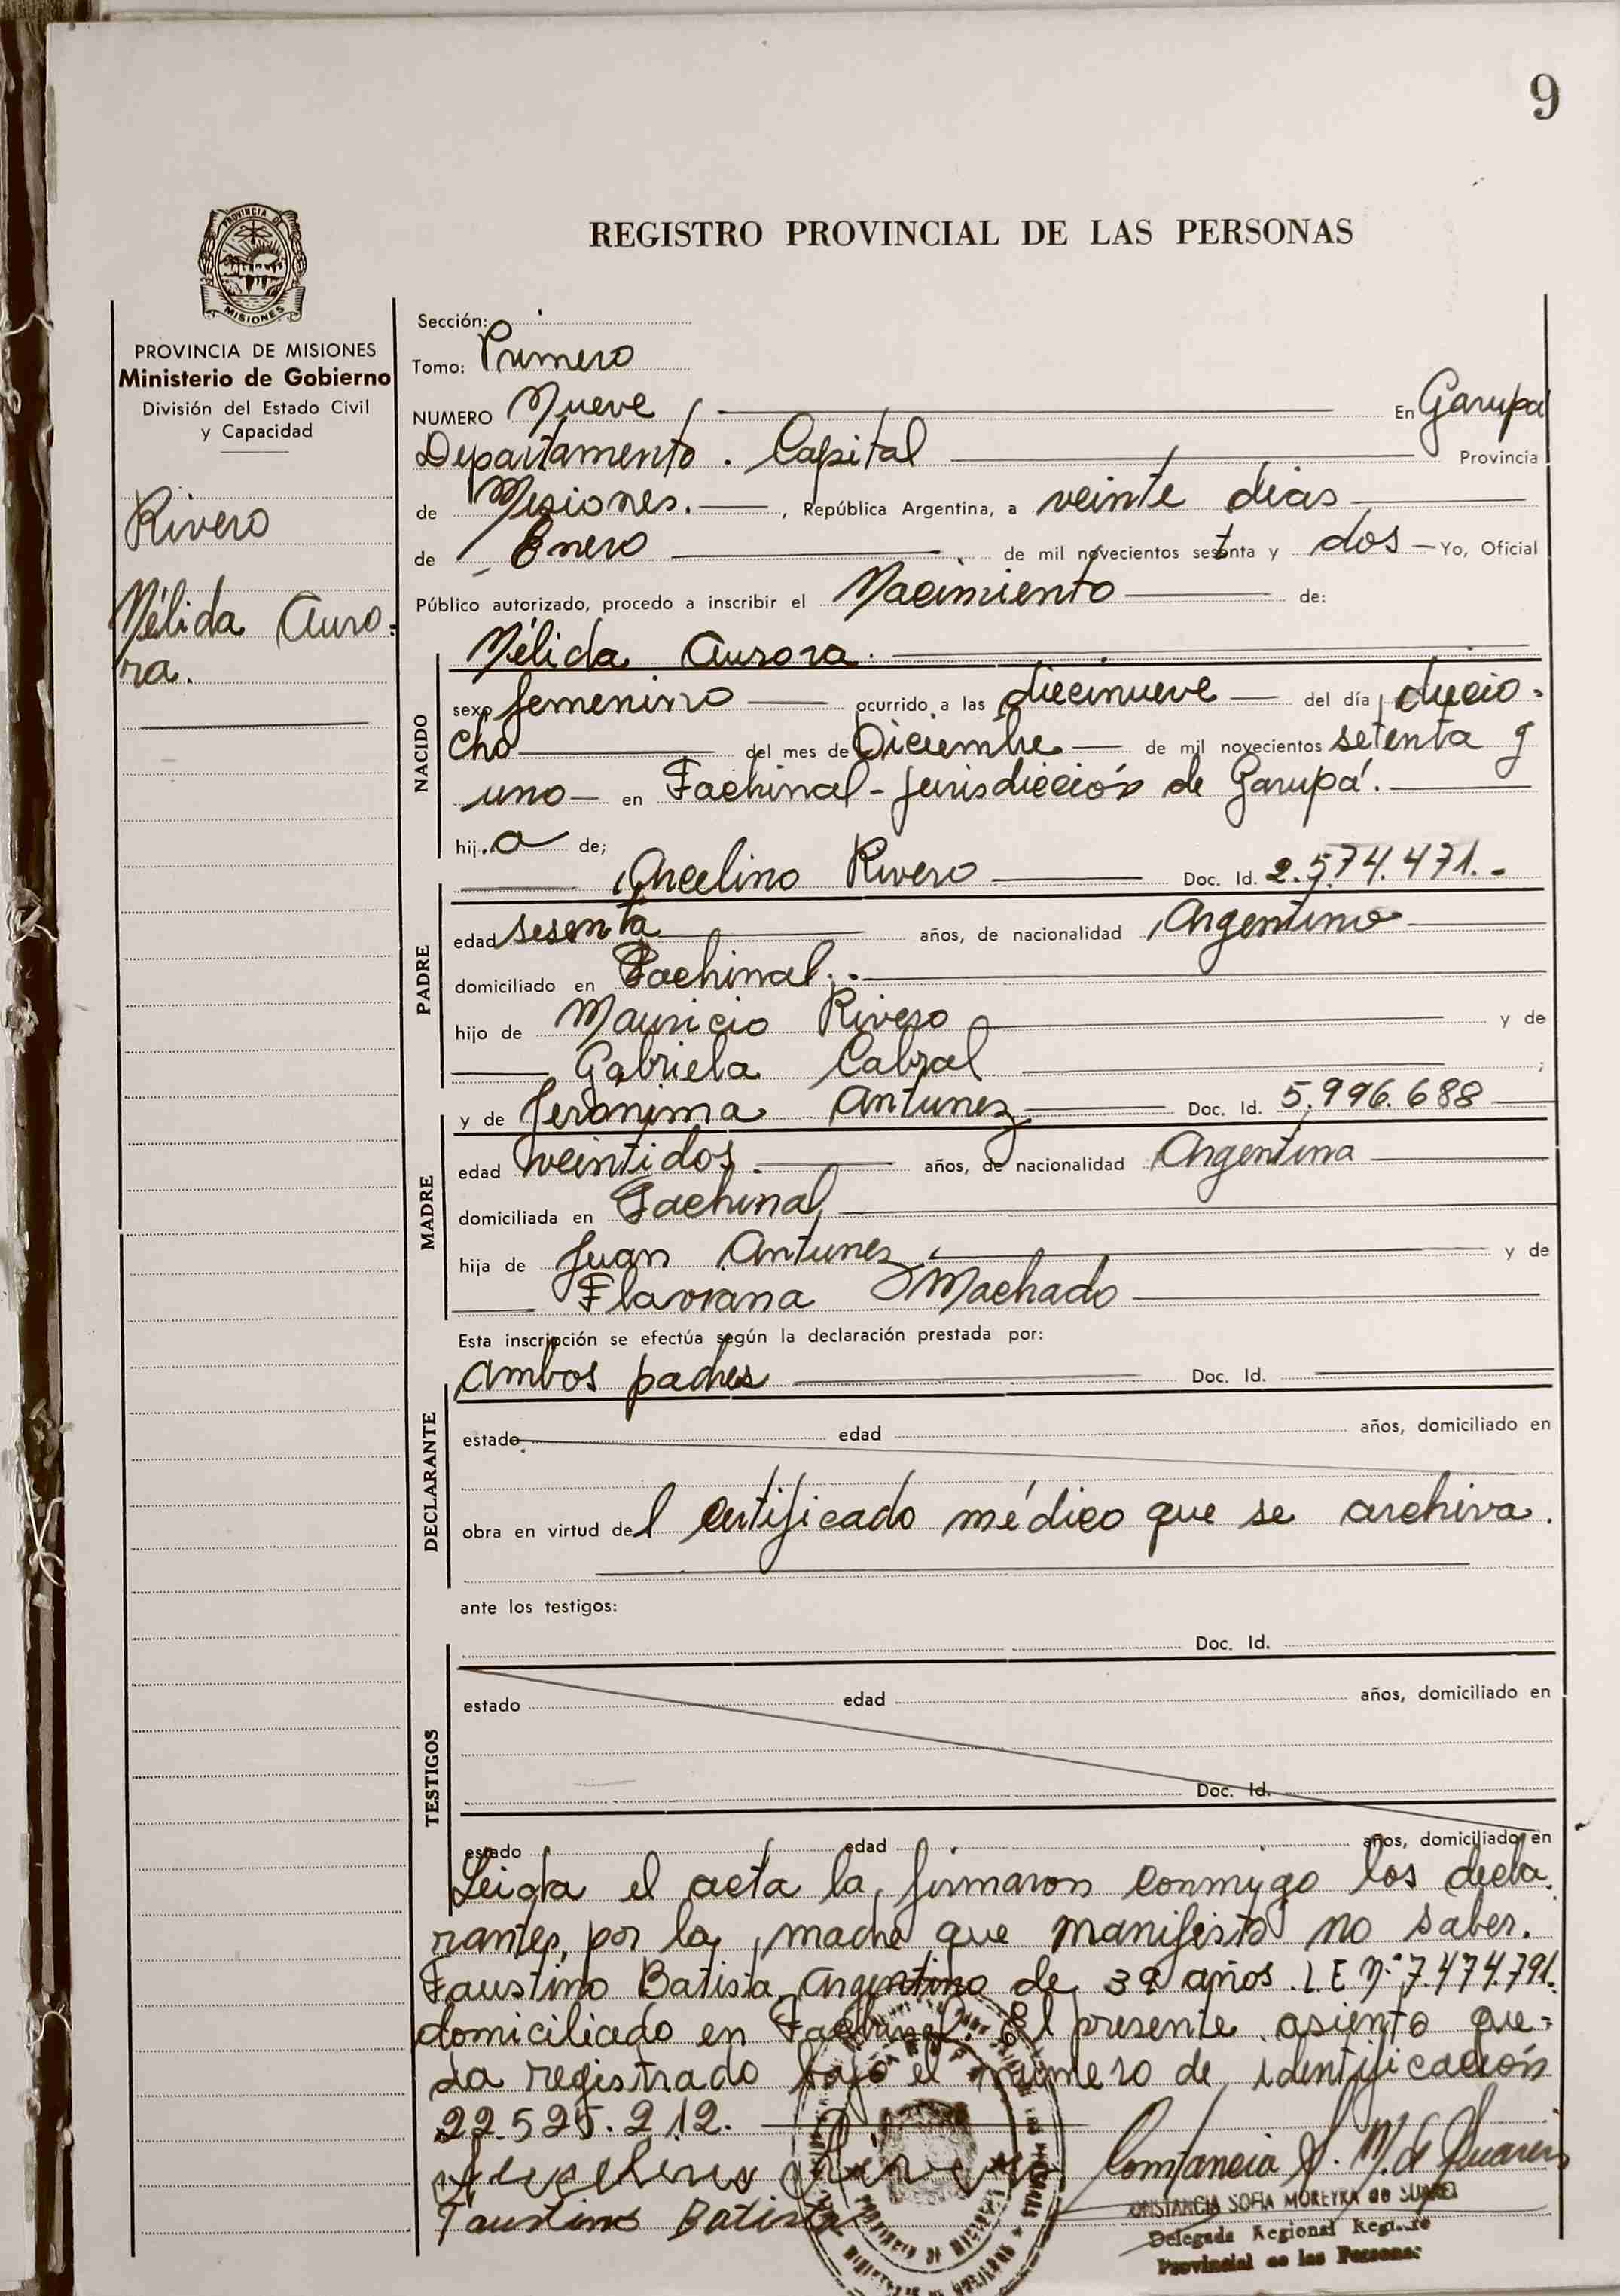 9
REGISTRO PROVINCIAL DE LAS PERSONAS
PROVINCIA DE
MISIONES
PROVINCIA DE MISIONES
Ministerio de Gobierno
División del Estado Civil
y Capacidad
Rivero
Nélida Auro-
ra.
Sección:
Tomo: Primero
NUMERO Nueve En Garupá
Departamento. Capital Provincia
de Misiones. , República Argentina, a veinte dias
de Enero de mil novecientos setenta y dos Yo, Oficial
Público autorizado, procedo a inscribir el Nacimiento de:
NACIDO
Nélida Aurora.
sexo femenino ocurrido a las diecinueve del día diecio-
cho del mes de Diciembre de mil novecientos setenta y
uno en Fachinal - jurisdicción de Garupá.
hij.a de;
PADRE
Arcelino Rivero Doc. Id. 2.574.471.-
edad sesenta años, de nacionalidad Argentino
domiciliado en Fachinal.
hijo de Mauricio Rivero y de
Gabriela Cabral ;
MADRE
y de Jerónima Antunez Doc. Id. 5.996.688
edad veintidos. años, de nacionalidad Argentina
domiciliada en Fachinal
hija de Juan Antunez y de
Flaviana Machado
Esta inscripción se efectúa según la declaración prestada por:
DECLARANTE
ambos padres Doc. Id.
estado edad años, domiciliado en
obra en virtud del certificado médico que se archiva.
ante los testigos:
TESTIGOS
Doc. Id.
estado edad años, domiciliado en
Doc. Id.
estado edad años, domiciliado en
Leida el acta la firmaron conmigo los decla-
rantes, por la madre que manifestó no saber.
Faustino Batista, Argentino de 39 años L.E Nº 7.474.791.
domiciliado en Fachinal. El presente asiento que-
da registrado bajo el número de identificación
22.525.212.
Rivero
Faustino Batista
Constancia S. M. de Suarez
CONSTANCIA SOFIA MOREYRA de SUAREZ
Delegada Regional Registro
Provincial de las Personas
PROVINCIA DE MISIONES
MINISTERIO DE GOBIERNO